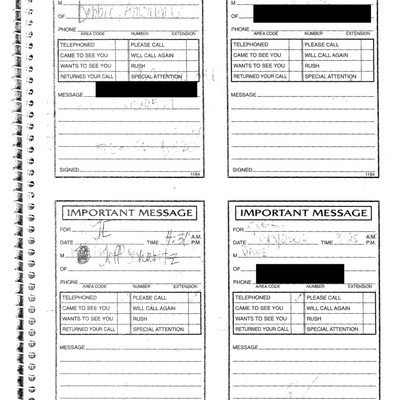 M
OF
PHONE
AREA CODE NUMBER EXTENSION
TELEPHONED PLEASE CALL
CAME TO SEE YOU WILL CALL AGAIN
WANTS TO SEE YOU RUSH
RETURNED YOUR CALL SPECIAL ATTENTION
MESSAGE
SIGNED 1184
M
OF
PHONE
AREA CODE NUMBER EXTENSION
TELEPHONED PLEASE CALL
CAME TO SEE YOU WILL CALL AGAIN
WANTS TO SEE YOU RUSH
RETURNED YOUR CALL SPECIAL ATTENTION
MESSAGE
SIGNED 1184
IMPORTANT MESSAGE
FOR JE
DATE TIME A.M.
P.M.
M Jeff
OF
PHONE
AREA CODE NUMBER EXTENSION
TELEPHONED PLEASE CALL
CAME TO SEE YOU WILL CALL AGAIN
WANTS TO SEE YOU RUSH
RETURNED YOUR CALL SPECIAL ATTENTION
MESSAGE
IMPORTANT MESSAGE
FOR
DATE TIME A.M.
P.M.
M
OF
PHONE
AREA CODE NUMBER EXTENSION
TELEPHONED PLEASE CALL
CAME TO SEE YOU WILL CALL AGAIN
WANTS TO SEE YOU RUSH
RETURNED YOUR CALL SPECIAL ATTENTION
MESSAGE